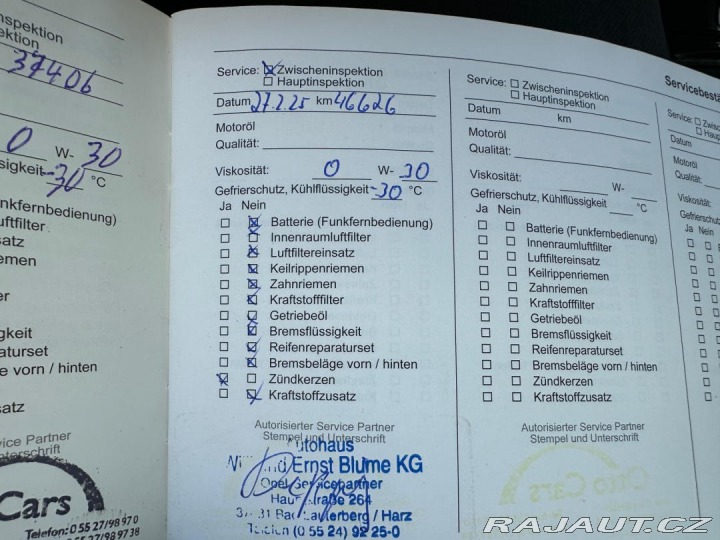 nspektion
ektion
37406
0 W- 30
ssigkeit -30 °C
nkfernbedienung)
uftfilter
satz
iemen
er
gkeit
aturset
n / hinten
satz
vice Partner
terschrift
Cars
Telefon: 0 55 27/98 97 0
Service: ☒ Zwischeninspektion
☐ Hauptinspektion
Datum 27.2.25 km 46626
Motoröl
Qualität:
Viskosität: 0 W- 30
Gefrierschutz, Kühlflüssigkeit -30 °C
Ja Nein
☐ ☒ Batterie (Funkfernbedienung)
☐ ☒ Innenraumluftfilter
☐ ☒ Luftfiltereinsatz
☐ ☒ Keilrippenriemen
☐ ☒ Zahnriemen
☐ ☒ Kraftstofffilter
☐ ☒ Getriebeöl
☐ ☒ Bremsflüssigkeit
☐ ☒ Reifenreparaturset
☐ ☒ Bremsbeläge vorn / hinten
☒ ☐ Zündkerzen
☐ ☒ Kraftstoffzusatz
Autorisierter Service Partner
Stempel und Unterschrift
Autohaus
Ernst Blume KG
Opel Servicepartner
Hauptstraße 264
Bad Lauterberg / Harz
Telefon (0 55 24) 92 25-0
Service: ☐ Zwischeninspektion
☐ Hauptinspektion
Datum km
Motoröl
Qualität:
Viskosität: W-
Gefrierschutz, Kühlflüssigkeit °C
Ja Nein
☐ ☐ Batterie (Funkfernbedienung)
☐ ☐ Innenraumluftfilter
☐ ☐ Luftfiltereinsatz
☐ ☐ Keilrippenriemen
☐ ☐ Zahnriemen
☐ ☐ Kraftstofffilter
☐ ☐ Getriebeöl
☐ ☐ Bremsflüssigkeit
☐ ☐ Reifenreparaturset
☐ ☐ Bremsbeläge vorn / hinten
☐ ☐ Zündkerzen
☐ ☐ Kraftstoffzusatz
Autorisierter Service Partner
Stempel und Unterschrift
Cars
Servicebestä
Service: ☐ Zwisc
☐ Haup
Datum
Motoröl
Qualität:
Viskosität:
Gefrierschu
Ja Nein
RAJAUT.CZ